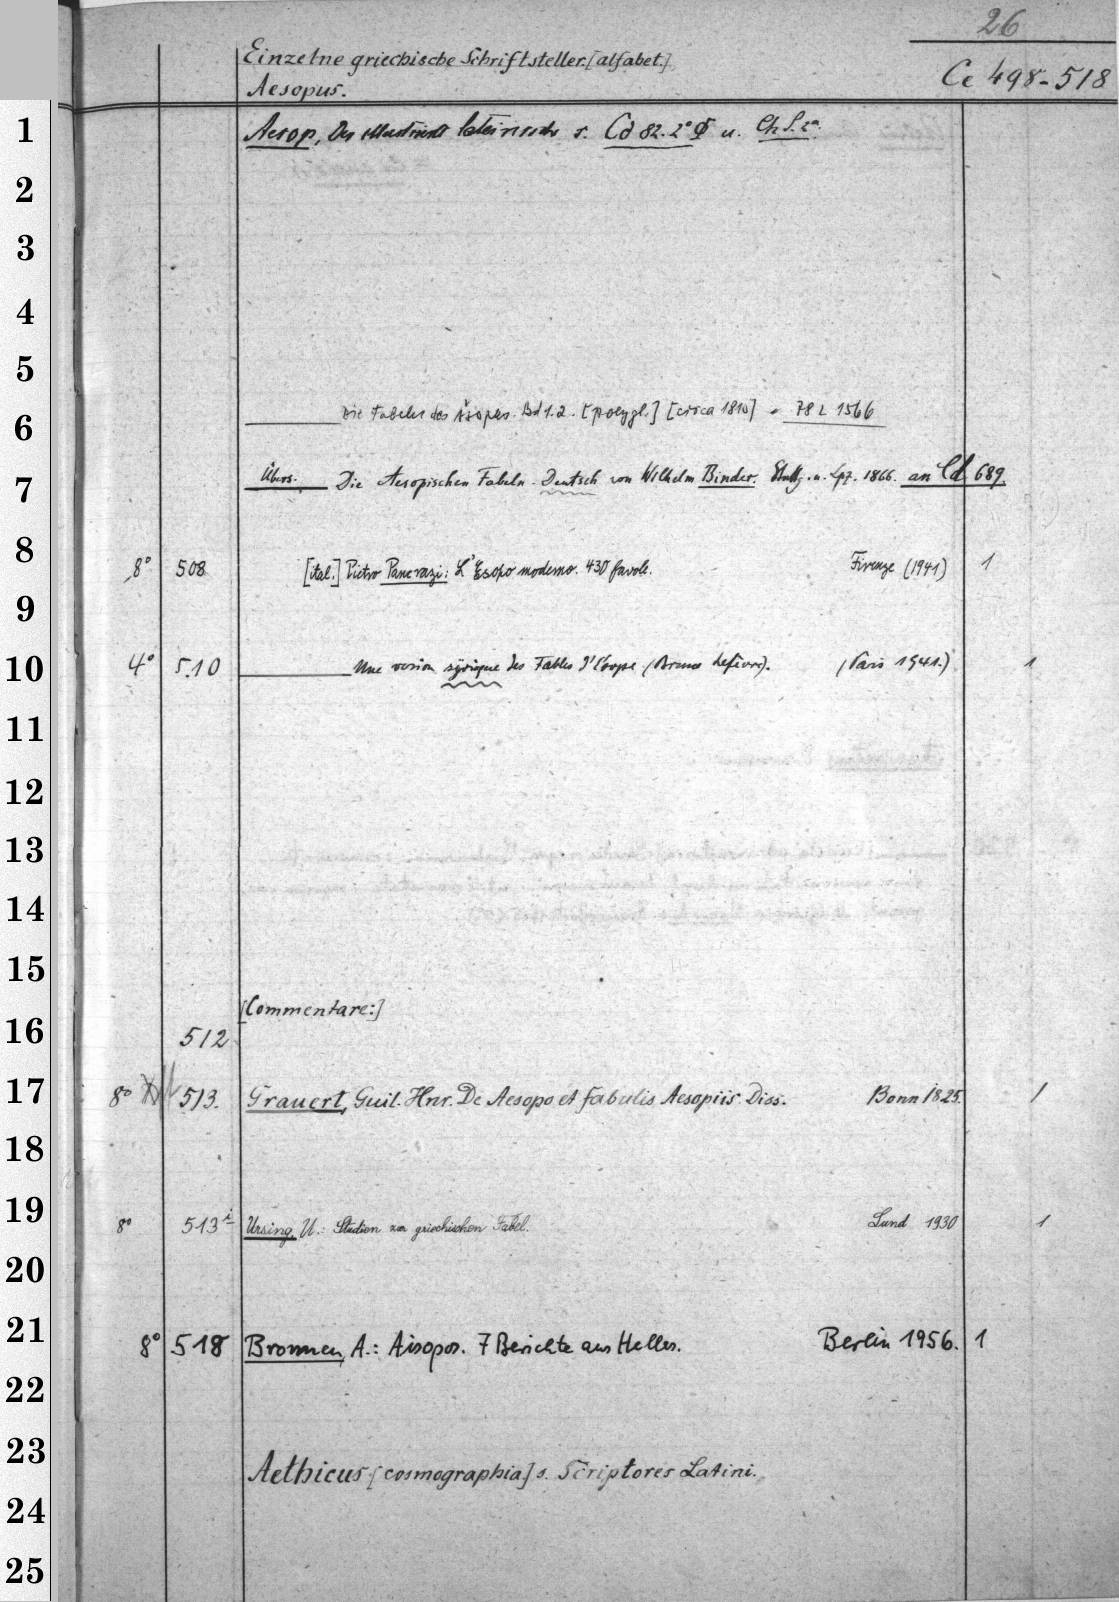 26
Einzelne griechische Schriftsteller. [alfabet.]
Ce 498-518
Aesopus.
1
Aesop, Der illustrierte lateinische s. Cd 82. 2° u. Ch
2
3
4
5
6
Die Fabeln des Äsopus. Bd 1.2. [polygl.] [circa 1810] = 78 L 1566
7
Übers. Die Aesopischen Fabeln. Deutsch von Wilhelm Binder. Stuttg. u. Lpz. 1866. an Cd 689.
8
8° 508 [ital.] Pietro Pancrazi: L'Esopo moderno. 430 favole. Firenze (1941) 1
9
10
4° 510 Une version syrique des Fables d'Esope (Bruno Lefèvre). (Paris 1941.) 1
11
12
13
14
15
[Commentare:]
16
512
17
8° 513. Grauert, Guil. Hnr. De Aesopo et fabulis Aesopiis. Diss. Bonn 1825. 1
18
19
8° 513 i Ursing, U.: Studien zur griechischen Fabel. Lund 1930 1
20
21
8° 518 Bronnen, A.: Aisopos. 7 Berichte aus Hellas. Berlin 1956. 1
22
23
Aethicus [cosmographia] s. Scriptores Latini.
24
25